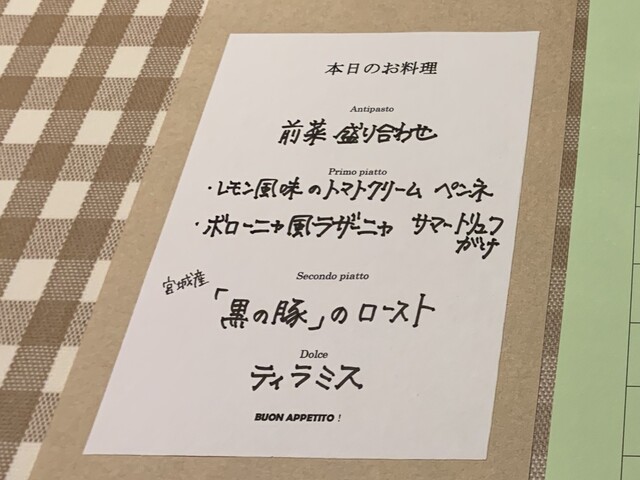 本日のお料理
Antipasto
前菜 盛り合わせ
Primo piatto
・レモン風味のトマトクリーム ペンネ
・ボローニャ風ラザーニャ サマートリュフ
がけ
Secondo piatto
宮城産
「黒の豚」のロースト
Dolce
ティラミス
BUON APPETITO !